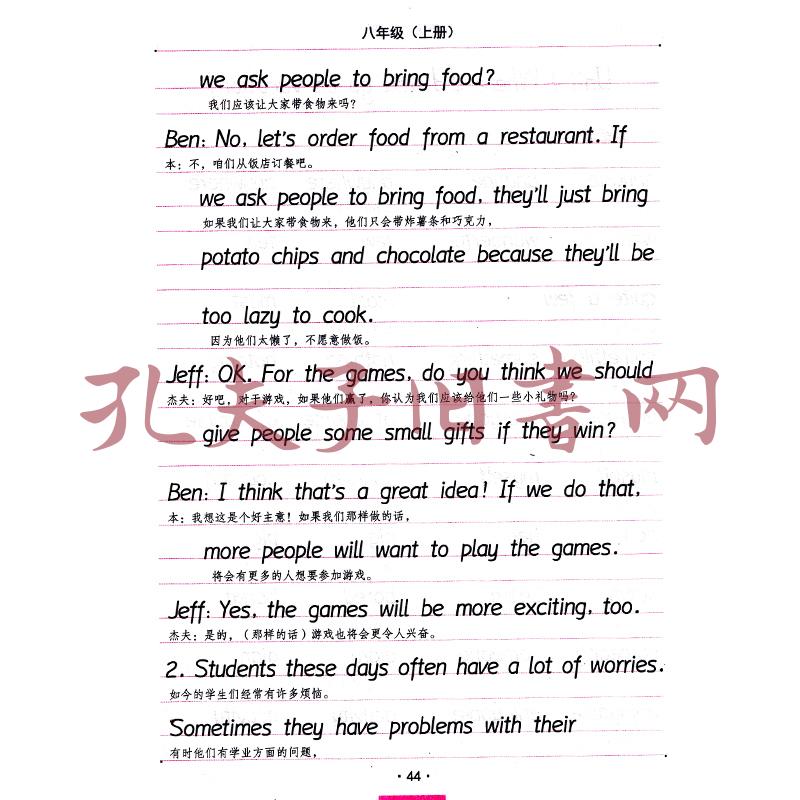 八年级（上册）
we ask people to bring food?
我们应该让大家带食物来吗？
Ben: No, let's order food from a restaurant. If
本：不，咱们从饭店订餐吧。
we ask people to bring food, they'll just bring
如果我们让大家带食物来，他们只会带炸薯条和巧克力，
potato chips and chocolate because they'll be
too lazy to cook.
因为他们太懒了，不愿意做饭。
Jeff: OK. For the games, do you think we should
杰夫：好吧，对于游戏，如果他们赢了，你认为我们应该给他们一些小礼物吗？
give people some small gifts if they win?
孔夫子旧书网
Ben: I think that's a great idea! If we do that,
本：我想这是个好主意！如果我们那样做的话，
more people will want to play the games.
将会有更多的人想要参加游戏。
Jeff: Yes, the games will be more exciting, too.
杰夫：是的，（那样的话）游戏也将会更令人兴奋。
2. Students these days often have a lot of worries.
如今的学生们经常有许多烦恼。
Sometimes they have problems with their
有时他们有学业方面的问题，
·44·